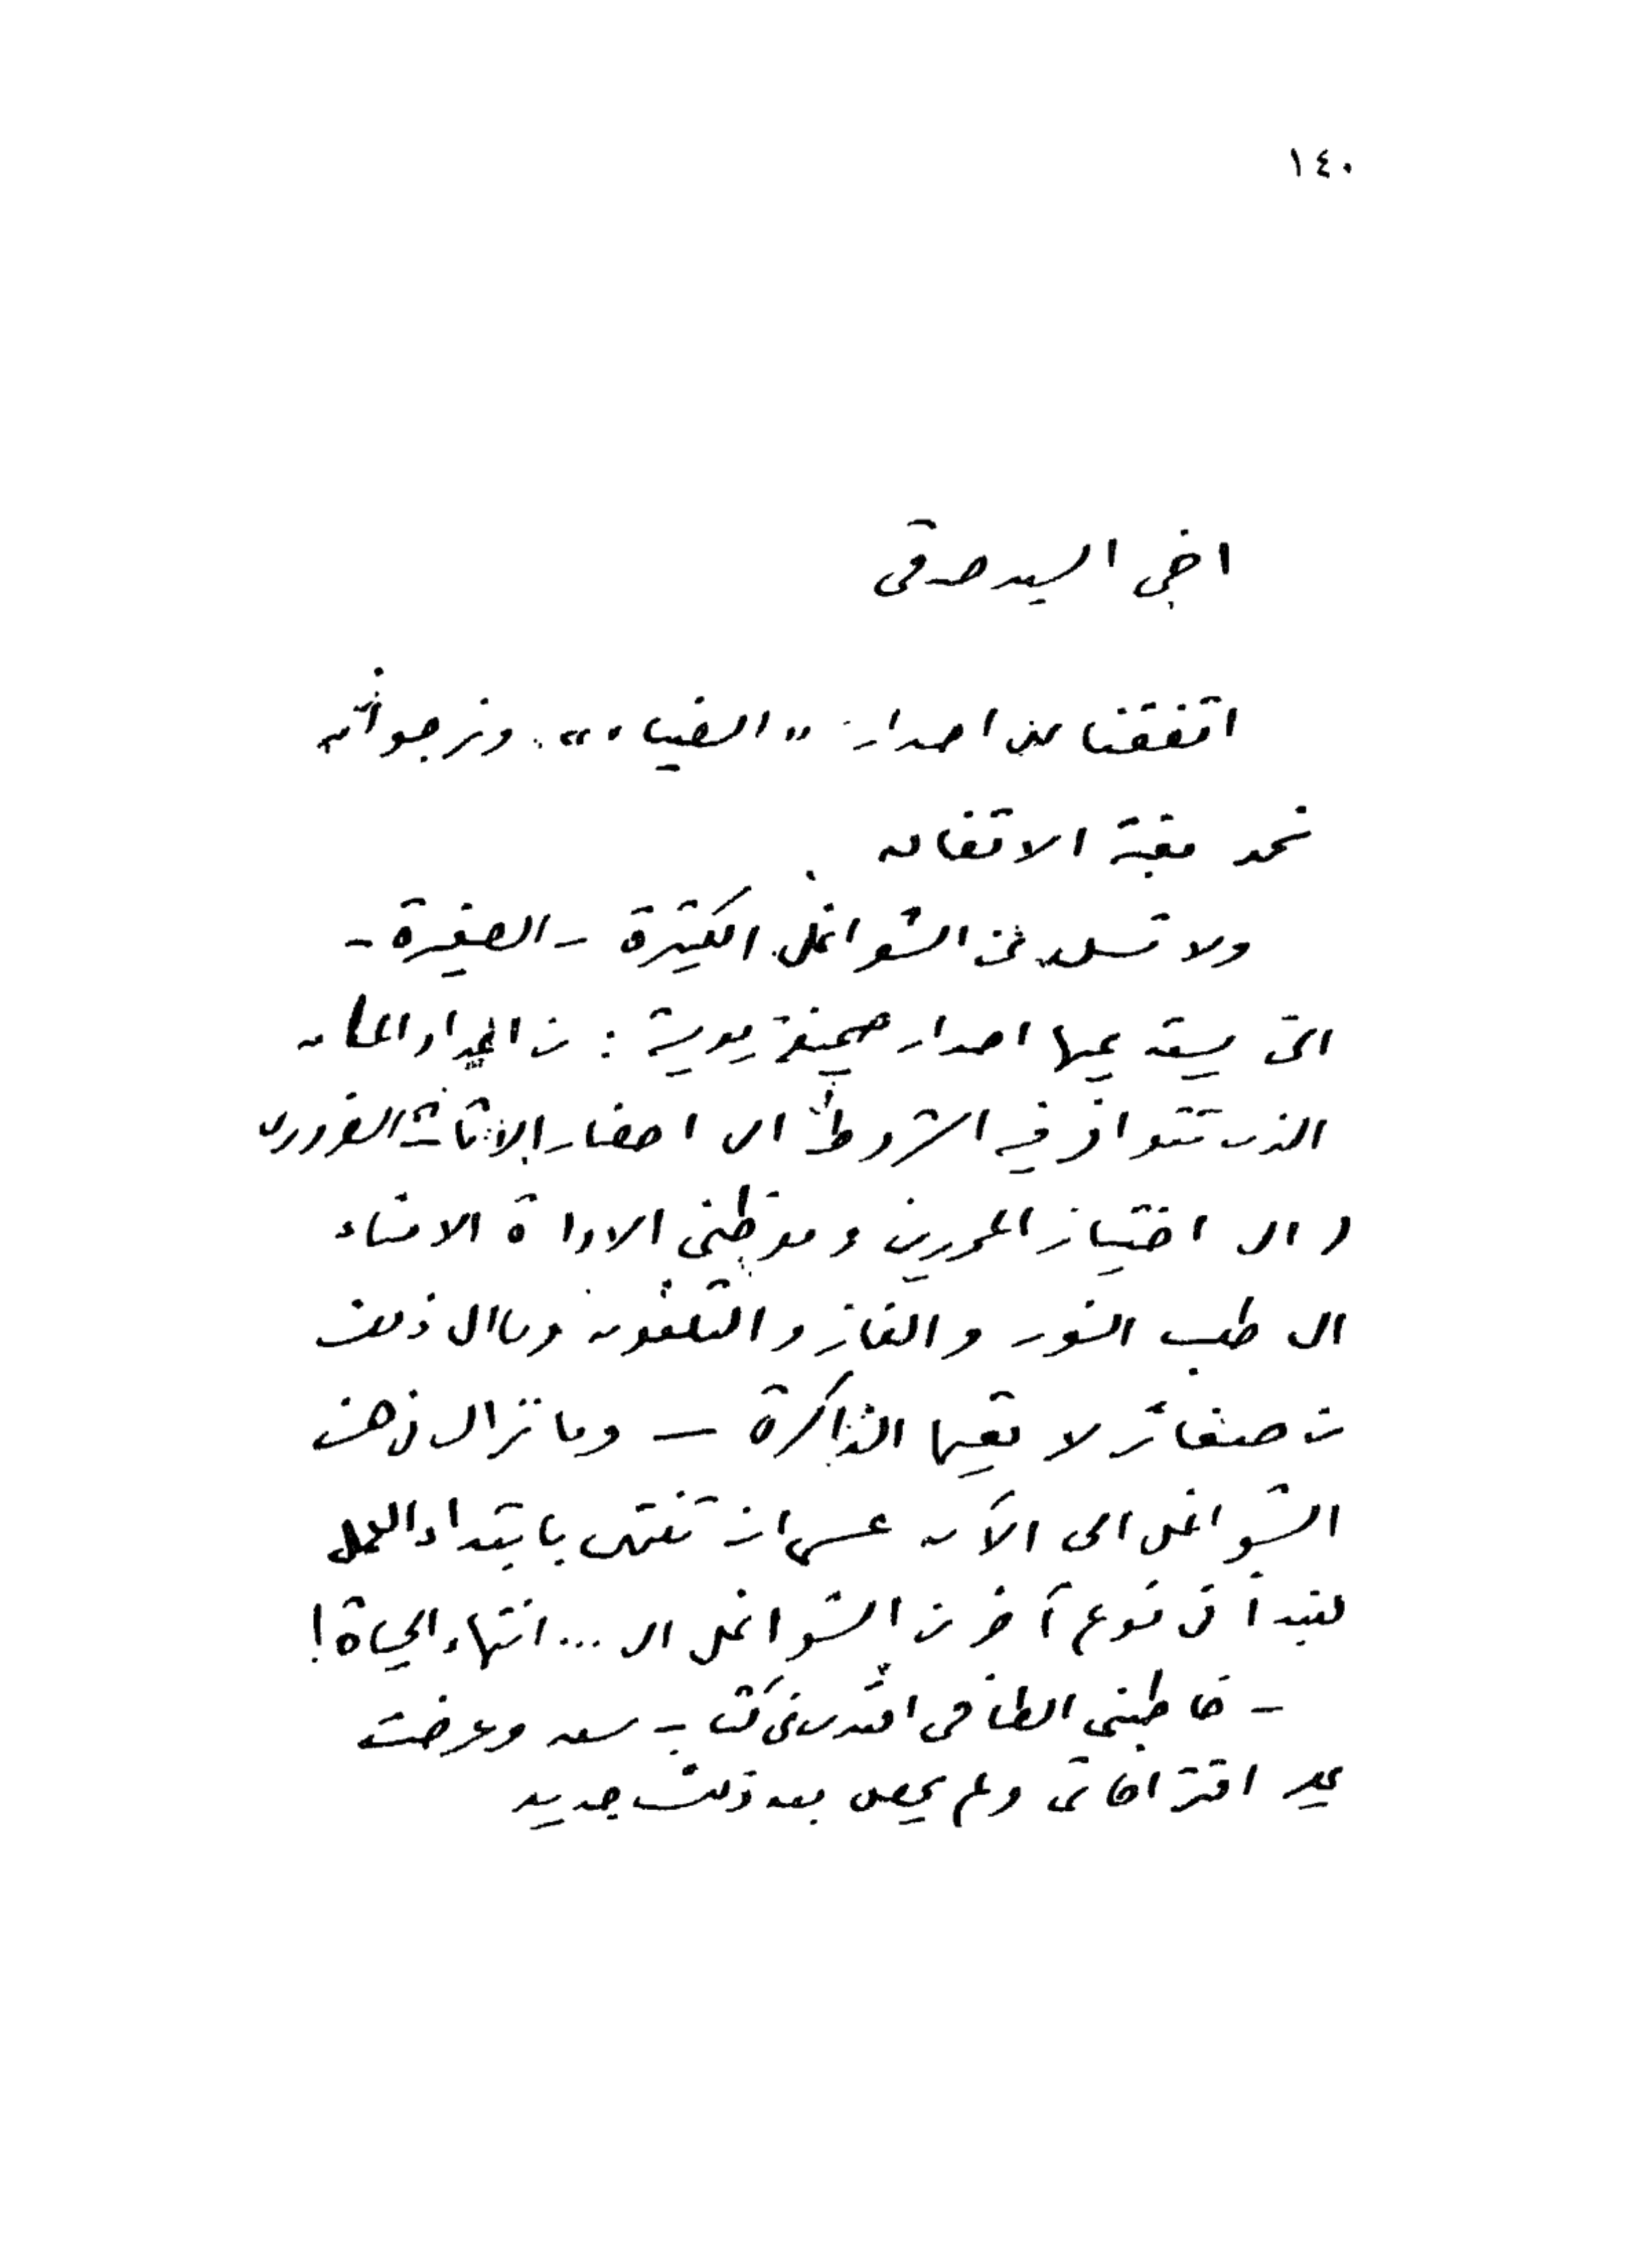 ١٤٠
اخي السيد صدقي
اتفقنا على اصدار «الضياء» ونرجو أن
نحمد مغبة الاتفاق
ولا تسل عن الشواغل الكثيرة - الصغيرة -
التي يستدعيها اصدار صحيفة يومية : من ايجاد المكان
الذي تتوافر فيه الشروط الى احضار الاثاث الضروري
الى اختيار المحررين وموظفي الادارة الامناء
الى طلب النور والغاز والتلفون وما الى ذلك
من صغائر لا تعيها الذاكرة — وما تزال
الشواغل الى الآن عسى ان تنتهي بابتداء العمل
لنبدأ في نوع آخر من الشواغل الى ... انتهاء الحياة !
- خاطبني الطناحي افندي في كتاب سعد وعرضت
عليه اقتراحاتي ولم يحصل بعد ذلك جديد